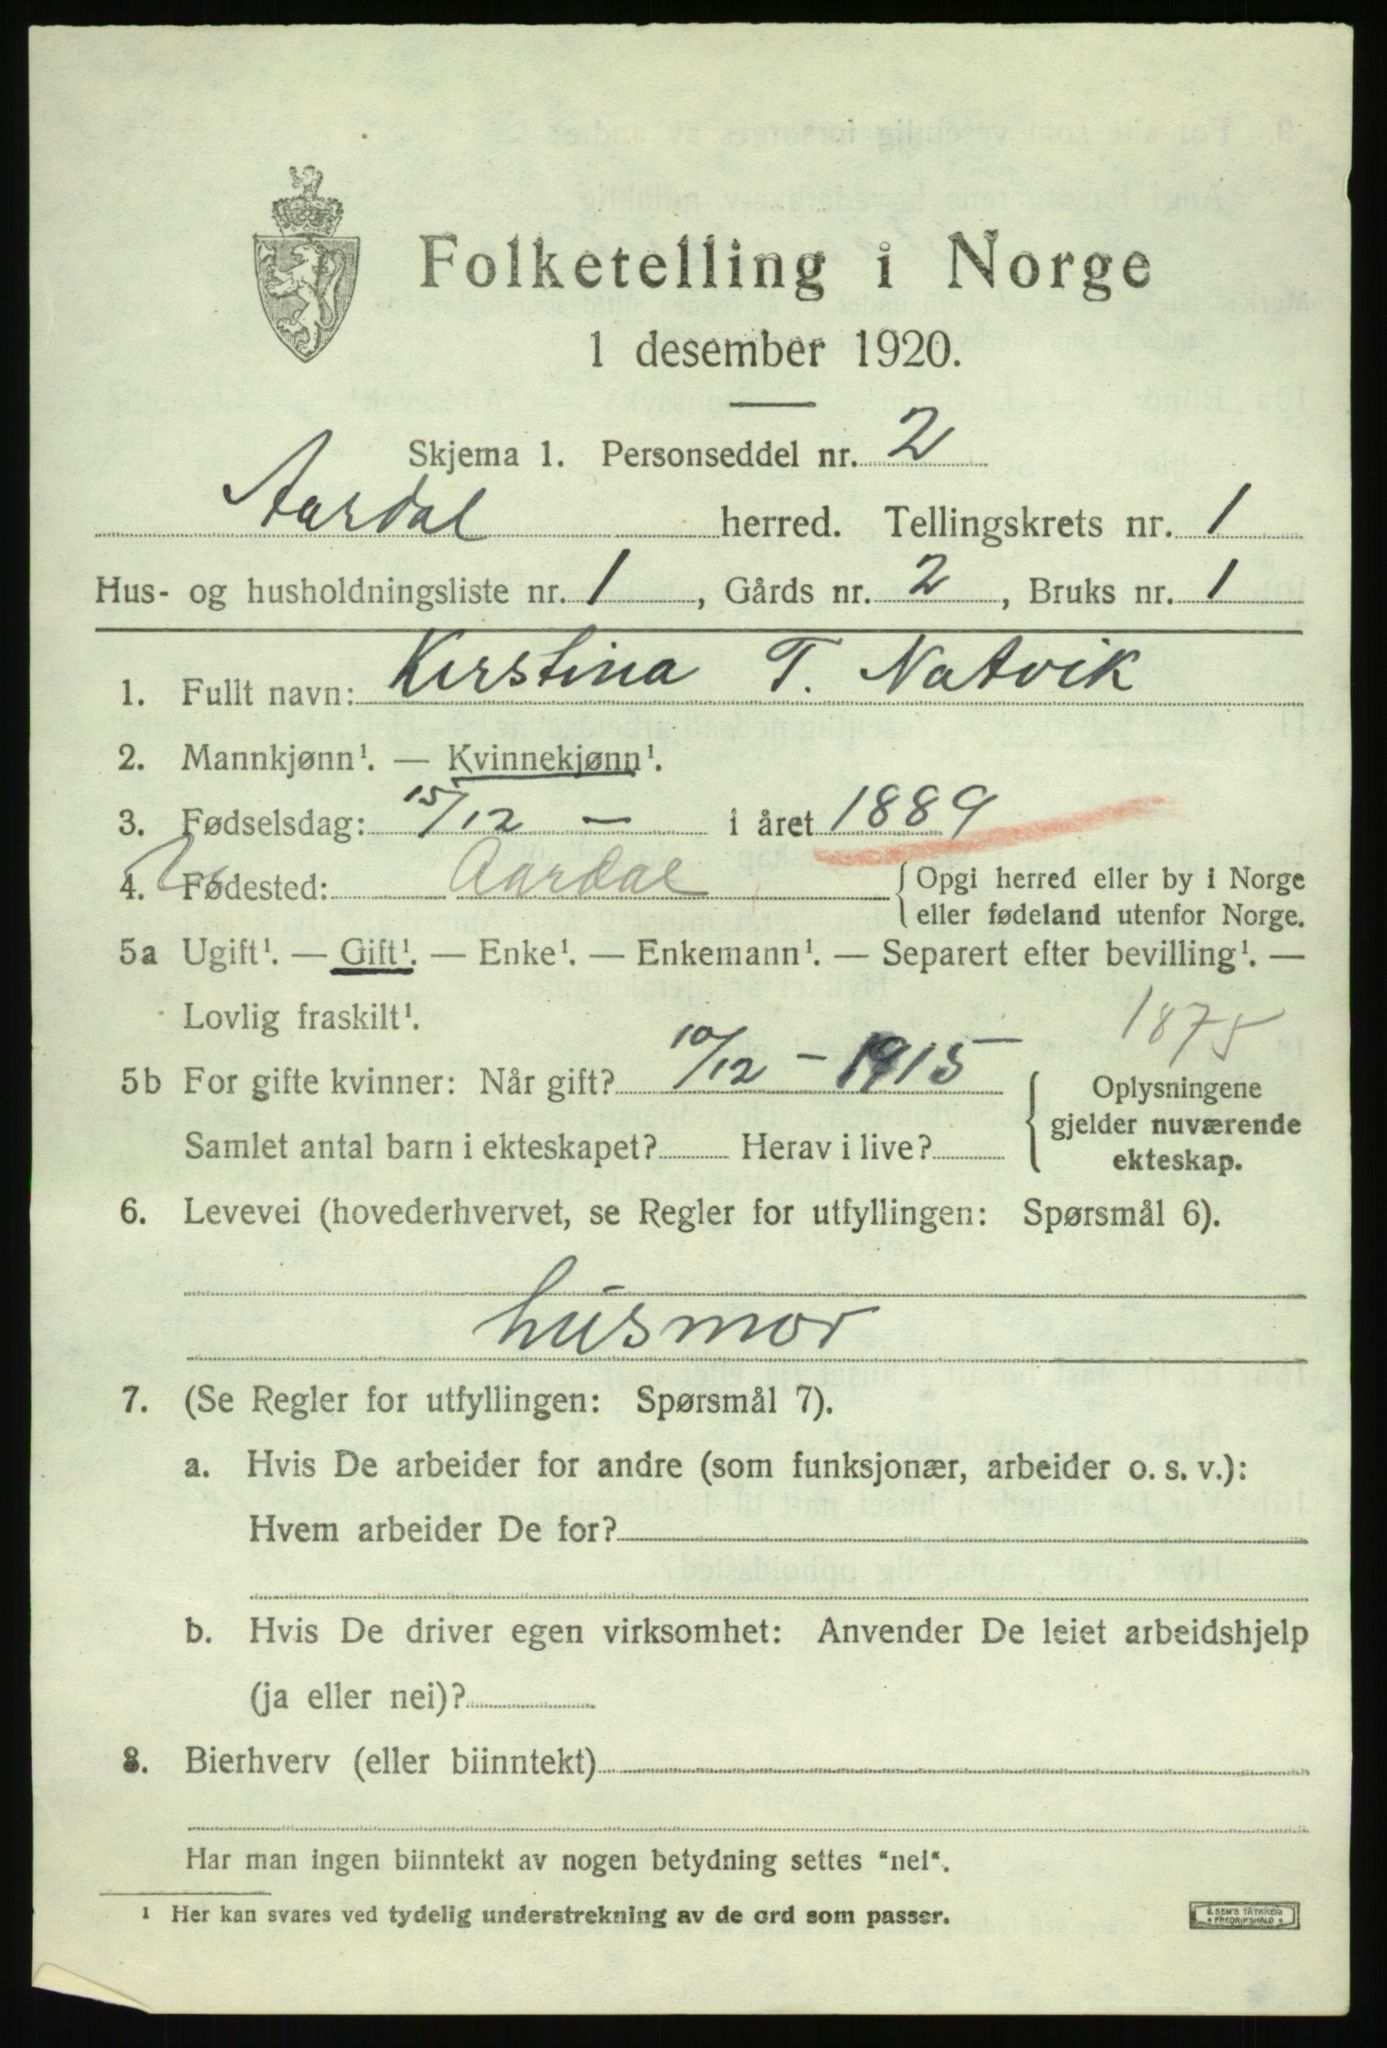 Folketelling i Norge
1 desember 1920.
Skjema 1. Personseddel nr. 2
Aardal herred. Tellingskrets nr. 1
Hus- og husholdningsliste nr. 1, Gårds nr. 2, Bruks nr. 1
1. Fullt navn: Kirstina T. Natvik
2. Mannkjønn¹. — Kvinnekjønn¹.
3. Fødselsdag: 15/12 — i året 1889
4. Fødested: Aardal {Opgi herred eller by i Norge
eller fødeland utenfor Norge.
5a Ugift¹. — Gift¹. — Enke¹. — Enkemann¹. — Separert efter bevilling¹. —
Lovlig fraskilt¹.
1875
5b For gifte kvinner: Når gift? 10/12 — 1915
Samlet antal barn i ekteskapet? Herav i live?
{Oplysningene
gjelder nuværende
ekteskap.
6. Levevei (hovederhvervet, se Regler for utfyllingen: Spørsmål 6).
husmor
7. (Se Regler for utfyllingen: Spørsmål 7).
a. Hvis De arbeider for andre (som funksjonær, arbeider o. s. v.):
Hvem arbeider De for?
b. Hvis De driver egen virksomhet: Anvender De leiet arbeidshjelp
(ja eller nei)?
8. Bierhverv (eller biinntekt)
Har man ingen biinntekt av nogen betydning settes "nei".
¹ Her kan svares ved tydelig understrekning av de ord som passer.
FREDRIKSHALD